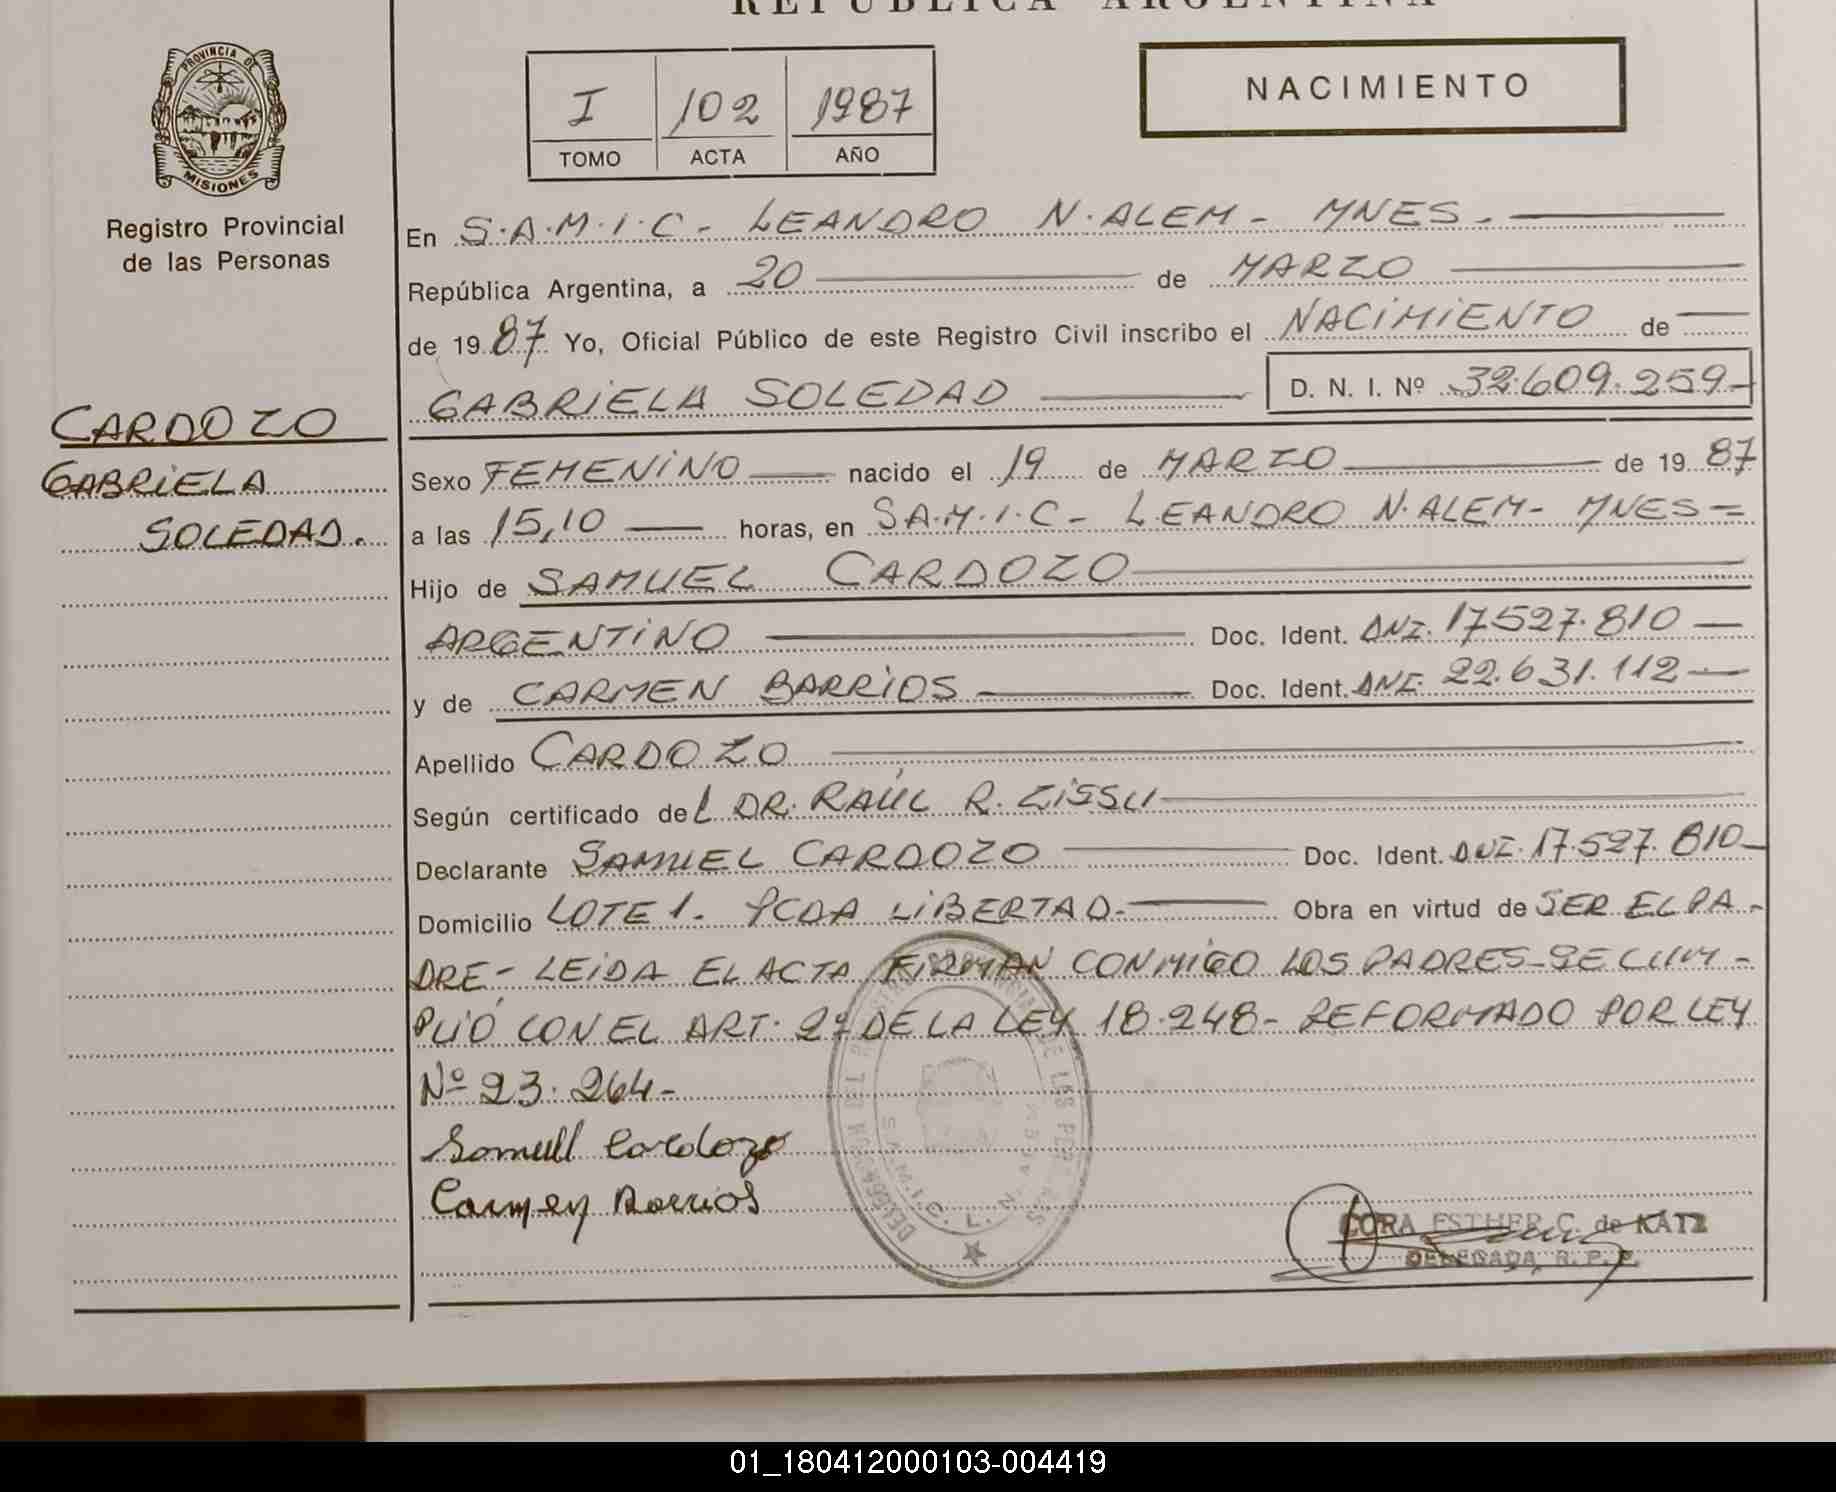 REPUBLICA ARGENTINA
PROVINCIA DE
MISIONES
Registro Provincial
de las Personas
I 102 1987
TOMO ACTA AÑO
NACIMIENTO
En S.A.M.I.C - LEANDRO N. ALEM - MNES -
República Argentina, a 20 de MARZO
de 1987 Yo, Oficial Público de este Registro Civil inscribo el NACIMIENTO de
GABRIELA SOLEDAD D. N. I. Nº 32.609.259-
CARDOZO
GABRIELA
SOLEDAD.
Sexo FEMENINO nacido el 19 de MARZO de 1987
a las 15,10 horas, en S.A.M.I.C - L.EANDRO N. ALEM - MNES =
Hijo de SAMUEL CARDOZO
ARGENTINO Doc. Ident. DNI. 17.527.810
y de CARMEN BARRIOS Doc. Ident. DNI. 22.631.112
Apellido CARDOZO
Según certificado del DR. RAÚL R. ZISSU
Declarante SAMUEL CARDOZO Doc. Ident. DNI. 17.527.810
Domicilio LOTE 1. PCDA LIBERTAD. Obra en virtud de SER EL PA-
DRE - LEIDA EL ACTA FIRMAN CONMIGO LOS PADRES - SE CUM-
PLIÓ CON EL ART. 2º DE LA LEY 18.248 - REFORMADO POR LEY
Nº 23.264-
Samuel Cardozo
Carmen Barrios
CORA ESTHER C. de KATZ
DELEGADA R. P. P.
01_180412000103-004419